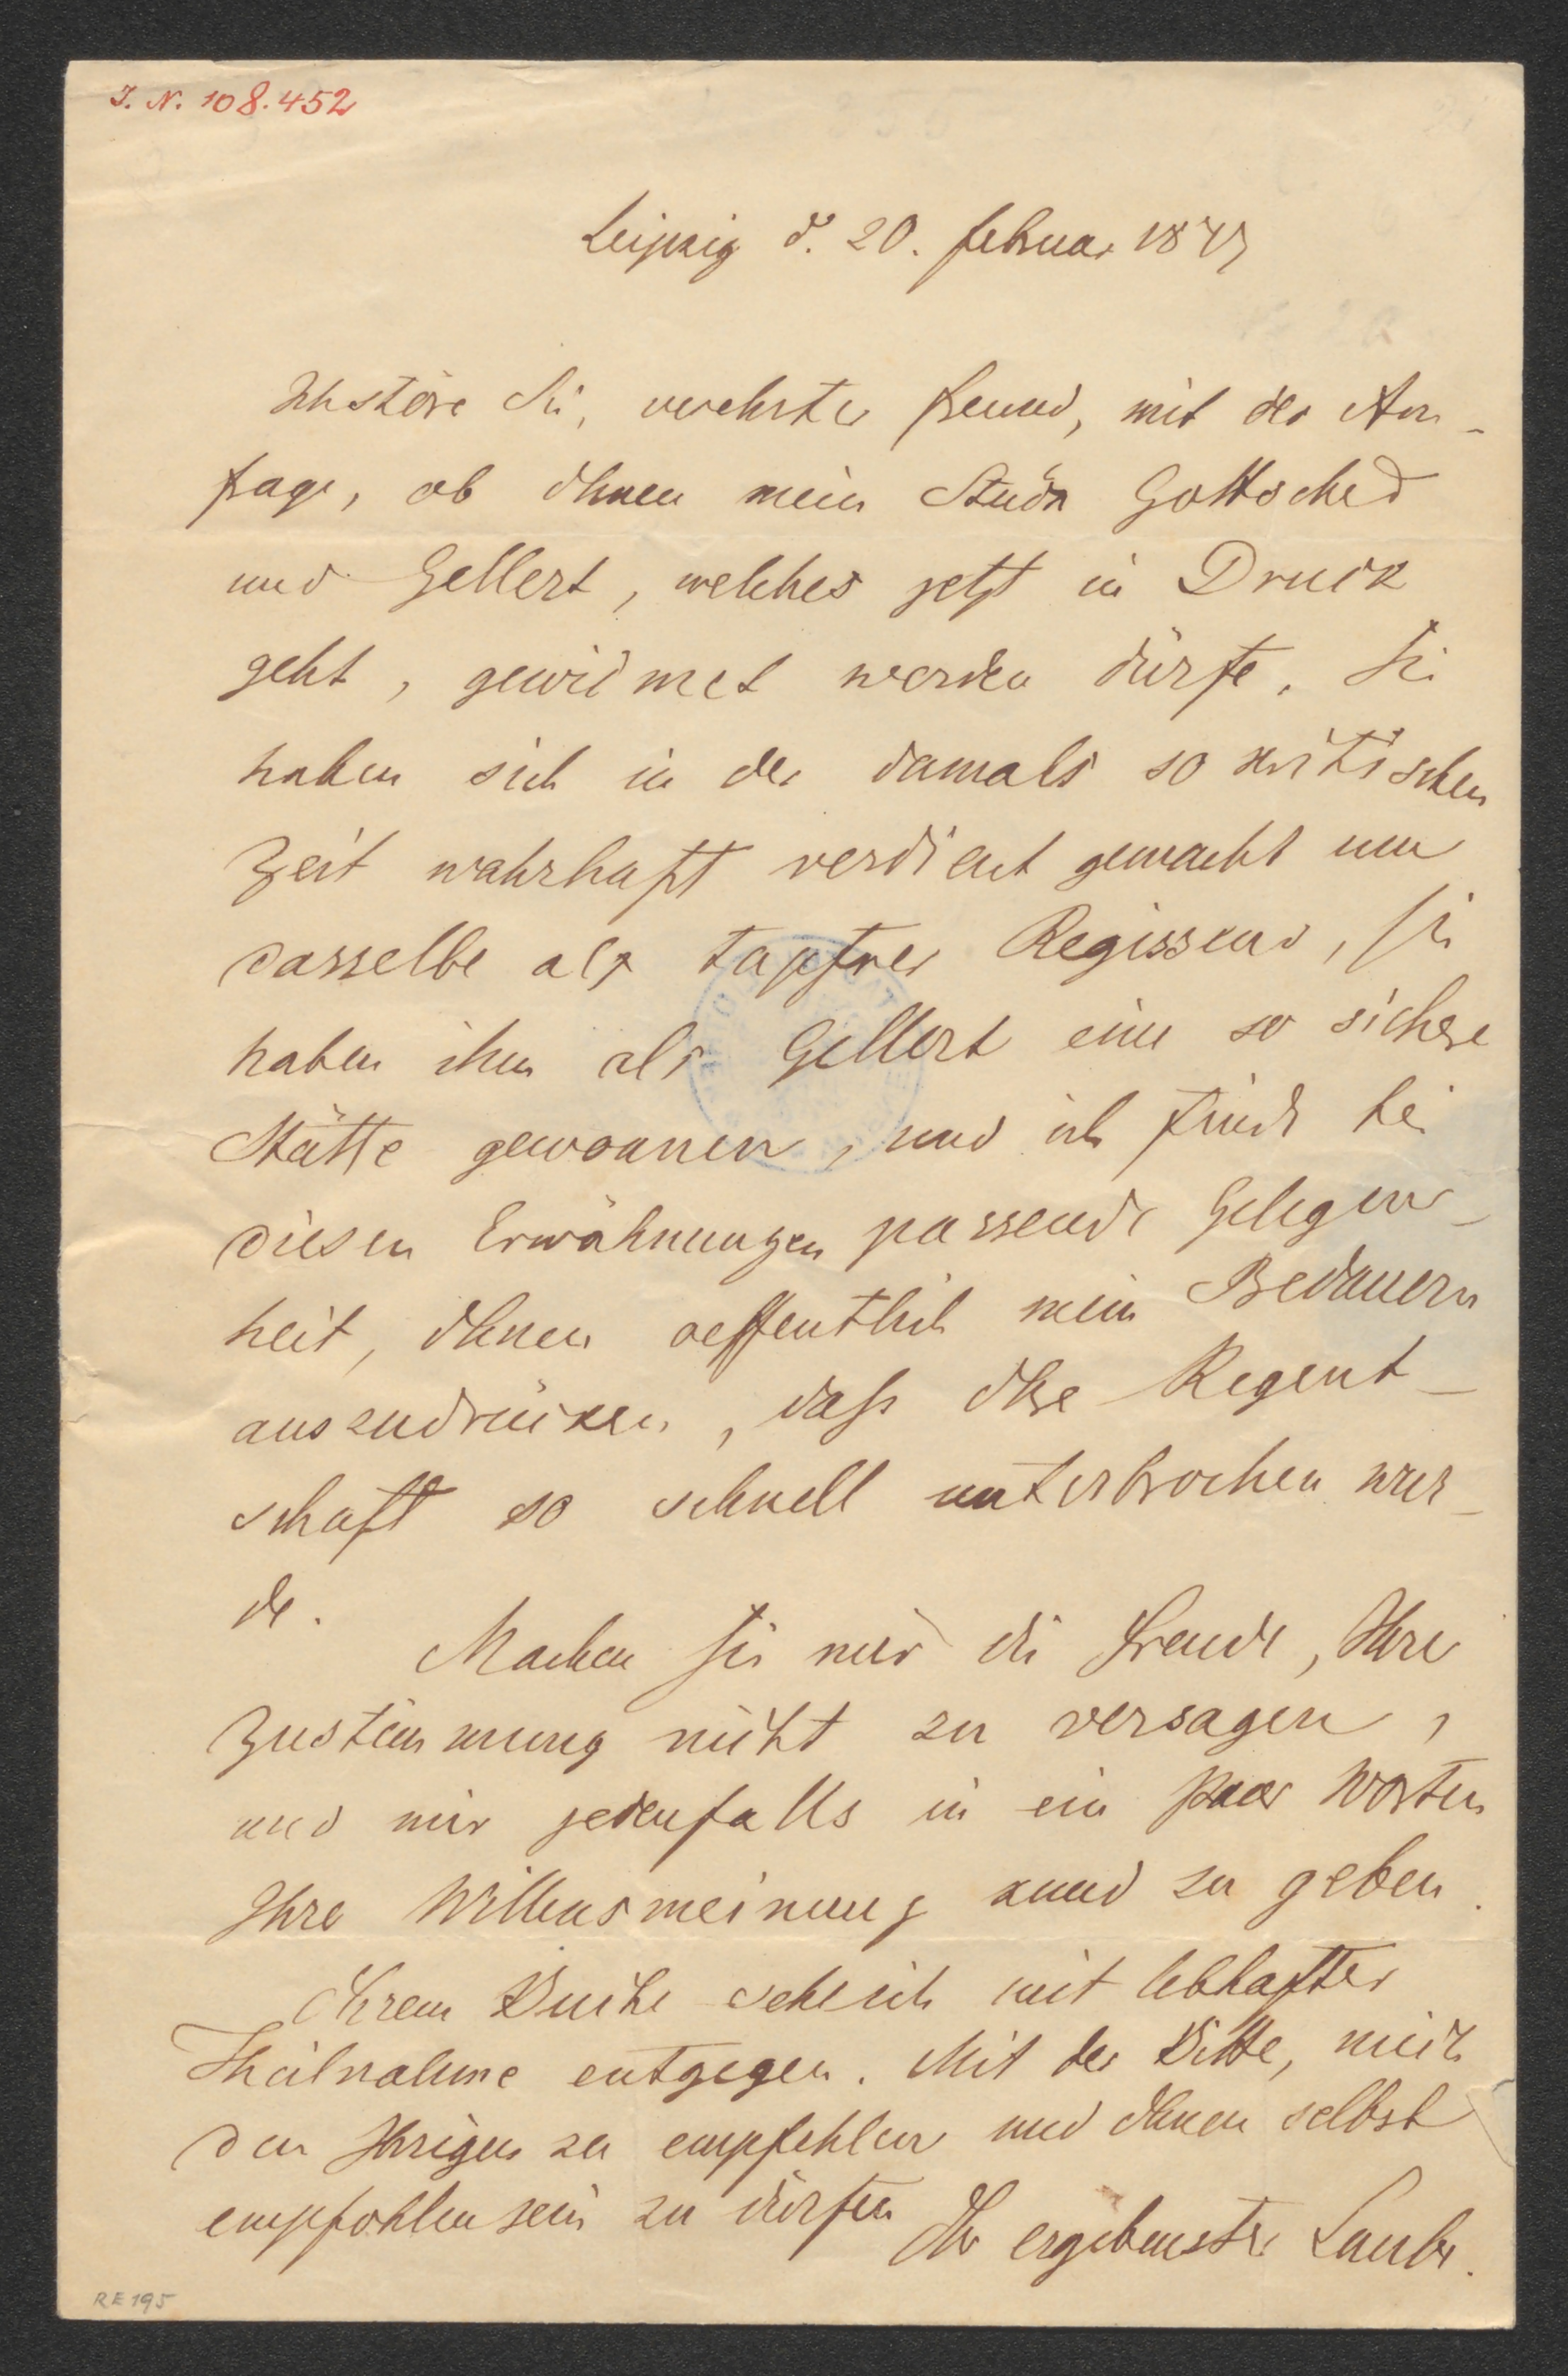 I. N. 108.452
Leipzig d. 20. Februar 1847
Ich störe Sie, verehrter Freund, mit der An-
frage, ob Ihnen mein Stück Gottsched
und Gellert, welches jetzt in Druck
geht, gewidmet werden dürfte. Sie
haben sich in der damals so kritischen
Zeit wahrhaft verdient gemacht um
dasselbe als tapfrer Regisseur, Sie
haben ihm als Gellert eine so sichere
Stätte gewonnen, und ich finde bei
diesen Erwähnungen passende Gelegen-
heit, Ihnen oeffentlich mein Bedauern
auszudrücken, daß Ihre Regent-
schaft so schnell unterbrochen wur-
de.
Machen Sie mir die Freude, Ihre
Zustimmung nicht zu versagen,
und mir jedenfalls in ein paar Worten
Ihre Willensmeinung kund zu geben.
Ihrem Buche sehe ich mit lebhafter
Theilnahme entgegen. Mit der Bitte, mich
den Ihrigen zu empfehlen und Ihnen selbst
empfohlen sein zu dürfen
Ihr ergebenster Laube.
RE 195